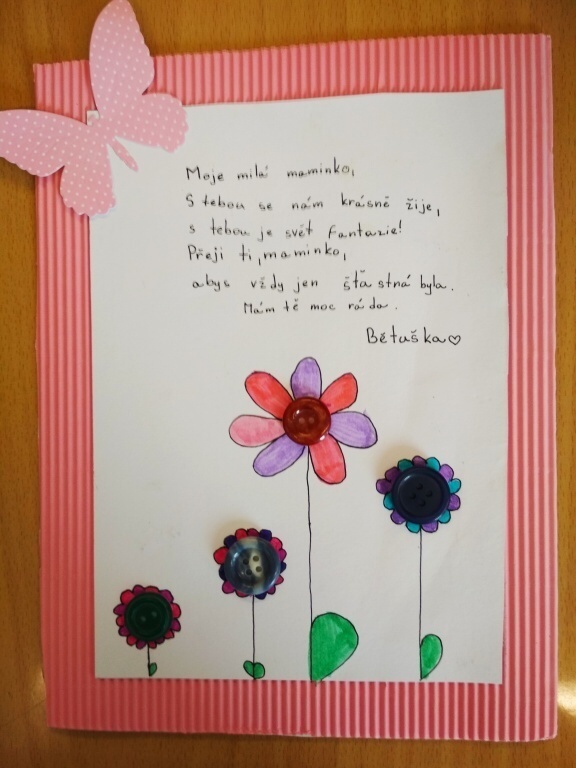 Moje milá maminko,
S tebou se nám krásně žije,
s tebou je svět fantazie!
Přeji ti, maminko,
abys vždy jen šťastná byla.
Mám tě moc ráda.
Bětuška♡